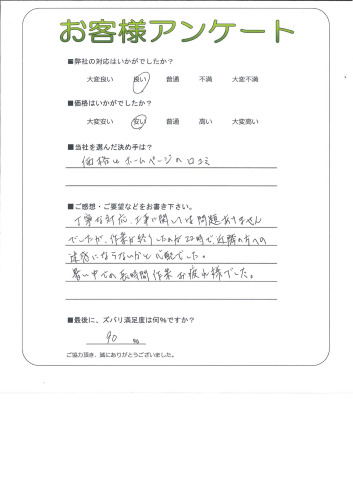 お客様アンケート
■弊社の対応はいかがでしたか？
大変良い 良い 普通 不満 大変不満
■価格はいかがでしたか？
大変安い 安い 普通 高い 大変高い
■当社を選んだ決め手は？
価格とホームページの口コミ
■ご感想・ご要望などをお書き下さい。
丁寧な対応、工事に関しては問題ありません
でしたが、作業が終了したのが22時で近隣の方への
迷惑にならないかと心配でした。
暑い中での長時間作業お疲れ様でした。
■最後に、ズバリ満足度は何％ですか？
90 %
ご協力頂き、誠にありがとうございました。